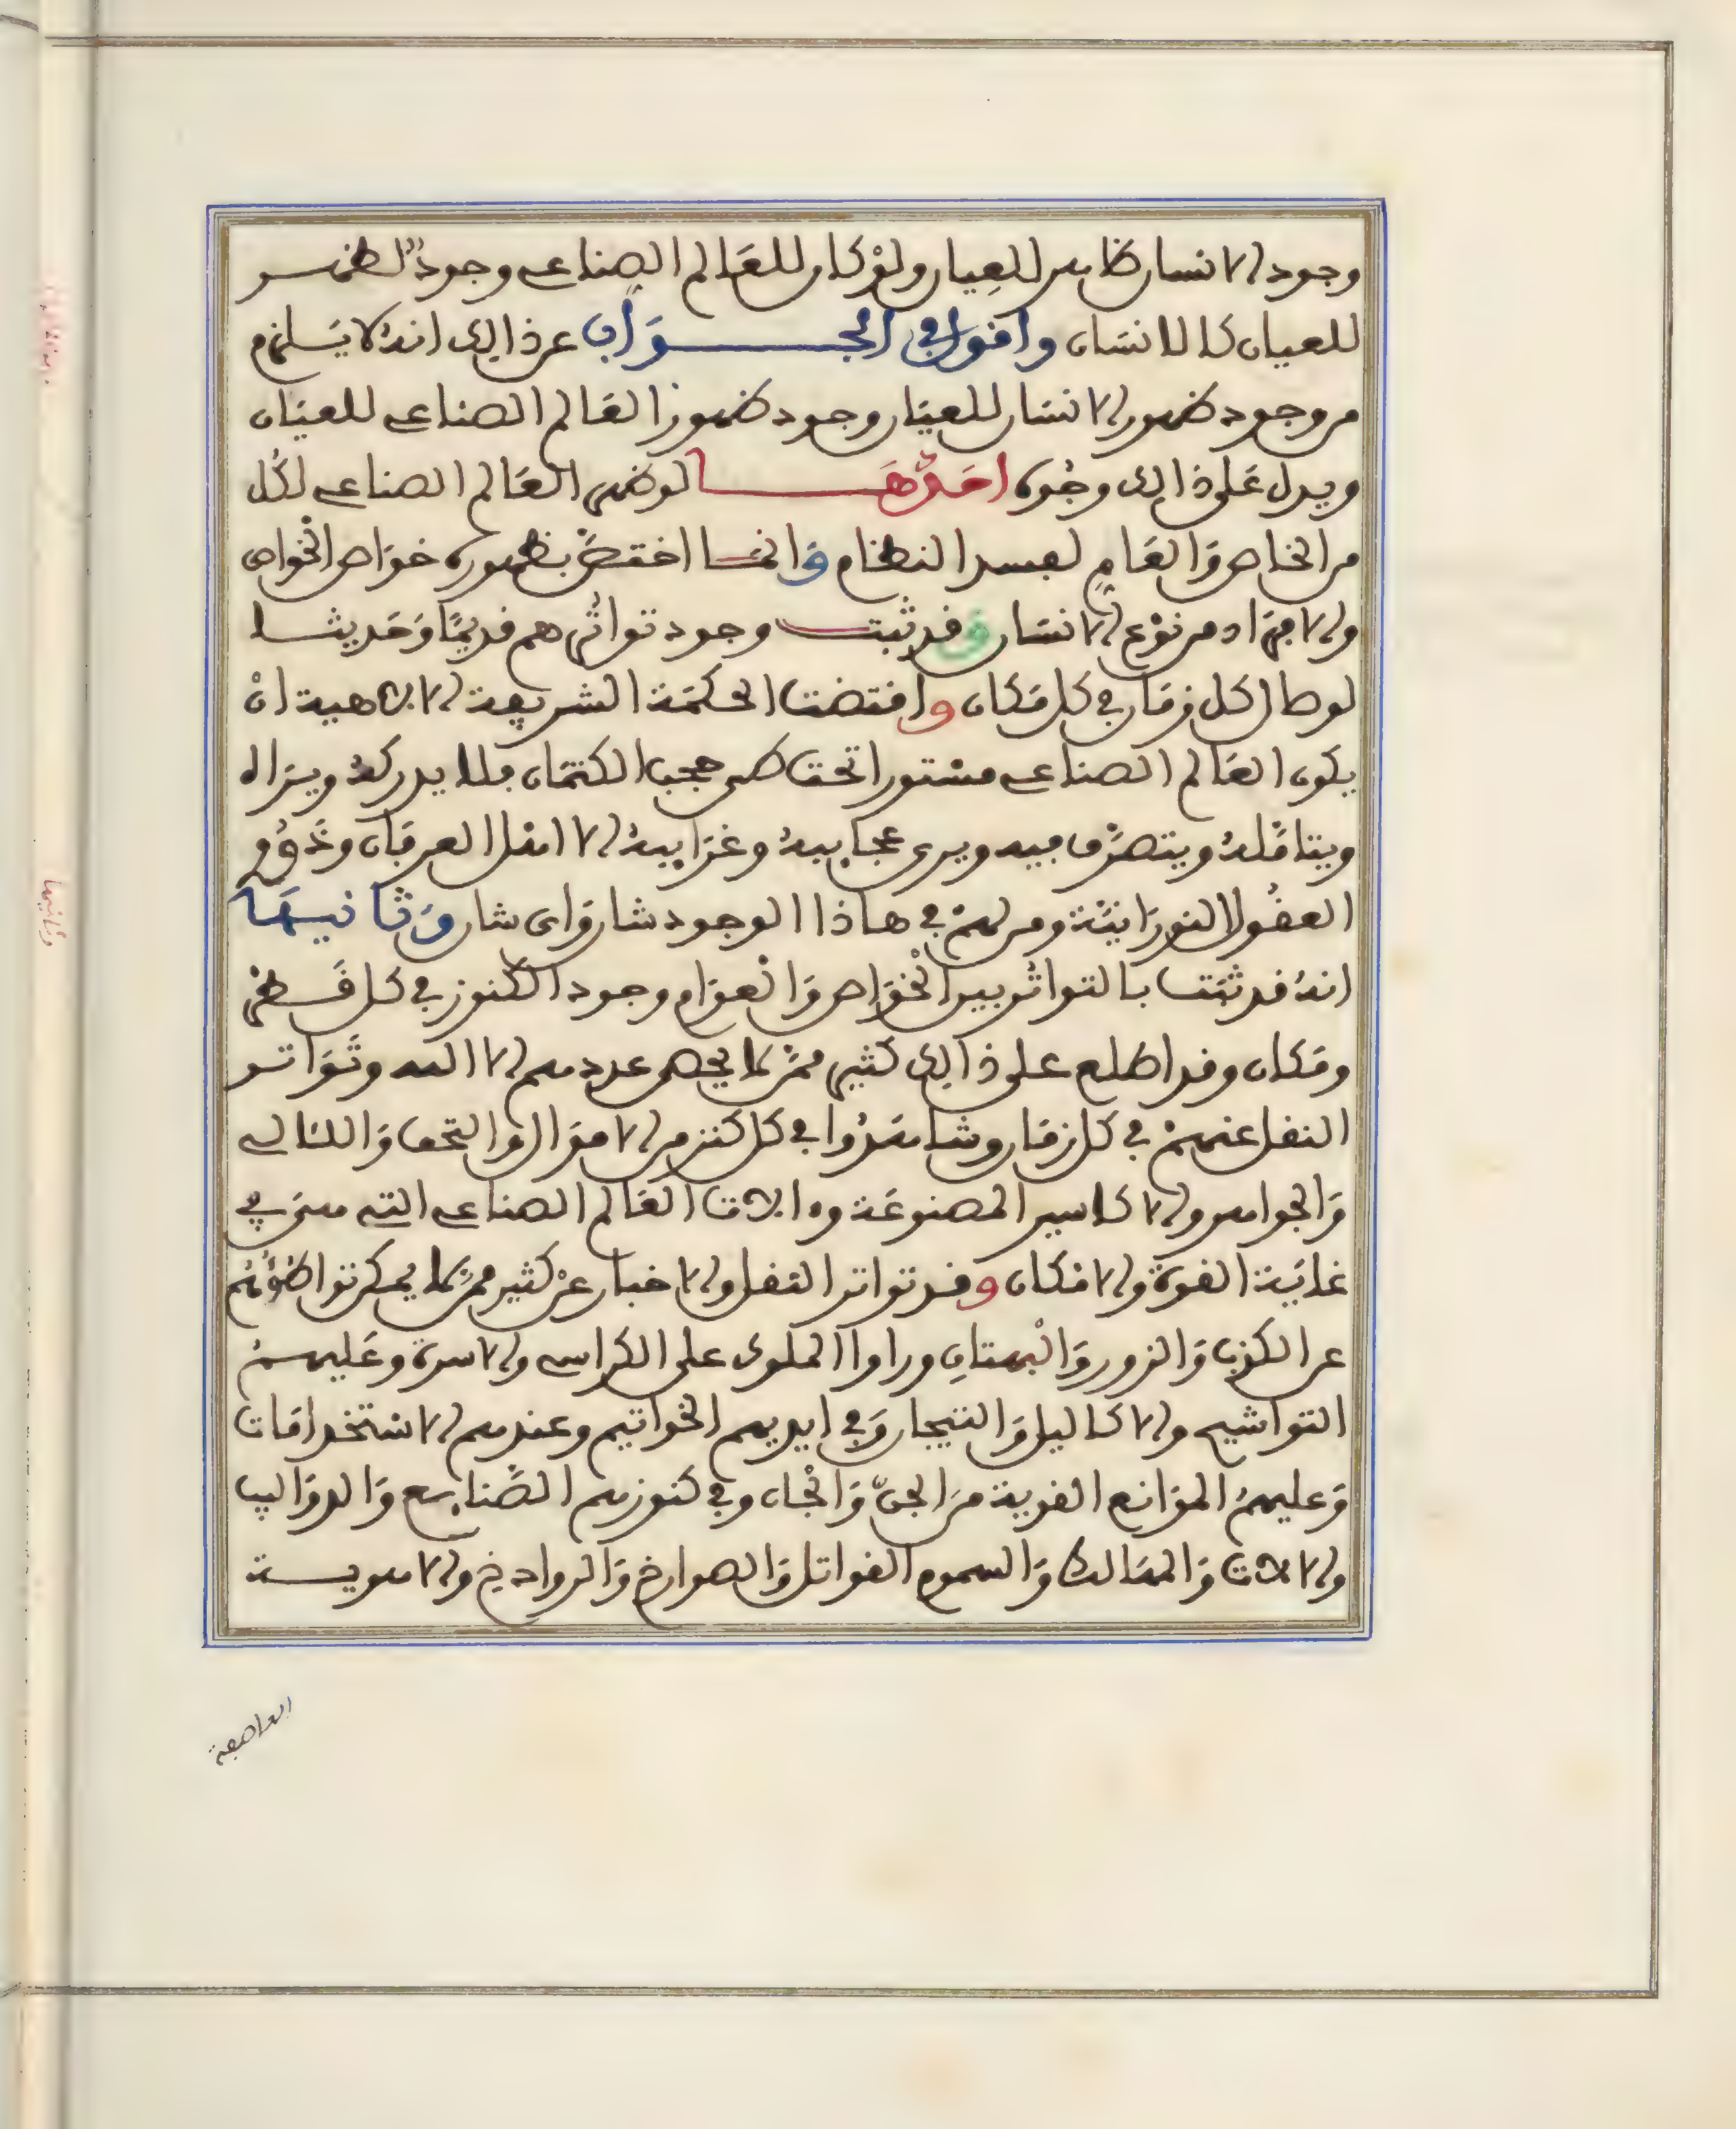 وجود الانسان ظاهر للعيان ولو كان للعالم الصناعي وجود لظهر
للعيان كالانسان واقول في الجواب عن ذالك انه لا يستلزم
من وجود ضهور الانسان للعيان وجود ضهور العالم الصناعي للعيان
ويدل على ذالك وجوه احدها لو ضهر العالم الصناعي لكل
من الخاص والعام لفسد النظام وانما اختص بظهوره خواص الخواص
والافراد من نوع الانسان وقد ثبت وجود تواترهم قديما وحديثا
لوطا كل زمان في كل مكان واقتضت الحكمة الشريفة الالاهية ان
يكون العالم الصناعي مستورا تحت طي حجب الكتمان فلا يدركه ويراه
ويتامله ويتصرف فيه ويرى عجايبه وغرايبه الا اهل العرفان وذوو
العقول النورانية ومن لهم في هاذا الوجود شان واي شان وثانيها
انه قد ثبت بالتواتر بين الخواص والعوام وجود الكنوز في كل قطر
ومكان وقد اطلع على ذالك كثير ممن لا يحصي عددهم الا الله وتواتر
النقل عنهم في كل زمان وشاهدوا في كل كنز من الاموال والتحف واللئالي
والجواهر والاكاسير المصنوعة وءالات العالم الصناعي التي هي في
غاية القوة والامكان وقد تواتر النقل والاخبار عن كثير ممن لا يمكن تواطؤهم
عن الكذب والزور والبهتان وراوا الملوك على الكراسي والاسرة وعليهم
التواشيح والاكاليل والتيجان وفي ايديهم الخواتيم وعندهم الاستخدامات
وعليهم الموانع القوية من الجن والجان وفي كنوزهم الصنايع والدواليب
والالات والمهالك والسموم القواتل والصوارخ والروادخ والاهوية
العاصفة
وثانيها